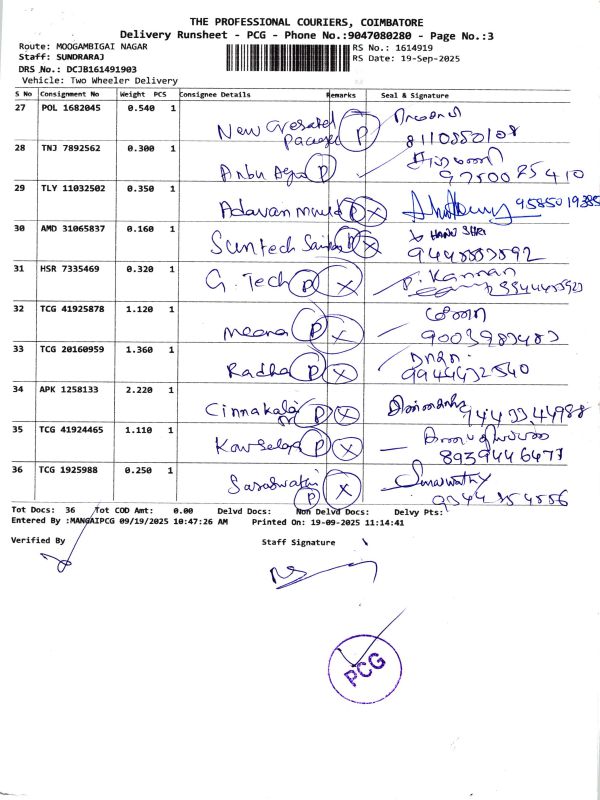 THE PROFESSIONAL COURIERS, COIMBATORE
Delivery Runsheet - PCG - Phone No.:9047080280 - Page No.:3
Route: MOOGAMBIGAI NAGAR RS No.: 1614919
Staff: SUNDRARAJ RS Date: 19-Sep-2025
DRS No.: DCJB161491903
Vehicle: Two Wheeler Delivery
S No Consignment No Weight PCS Consignee Details Remarks Seal & Signature
27 POL 1682045 0.540 1 New P
8110550108
28 TNJ 7892562 0.300 1 Anbu P
97500 75410
29 TLY 11032502 0.350 1 Adavan P X 9585019385
30 AMD 31065837 0.160 1 Suntech P X
31 HSR 7335469 0.320 1 G. Tech P X P. Kannan
32 TCG 41925878 1.120 1 Meena P X மீனா
9003983483
33 TCG 20160959 1.360 1 Radha P X ராதா
9944432540
34 APK 1258133 2.220 1 P X
35 TCG 41924465 1.110 1 P X
8939446477
36 TCG 1925988 0.250 1 Saraswathi P X
Tot Docs: 36 Tot COD Amt: 0.00 Delvd Docs: Non Delvd Docs: Delvy Pts:
Entered By :MANGAIPCG 09/19/2025 10:47:26 AM Printed On: 19-09-2025 11:14:41
Verified By Staff Signature
PCG